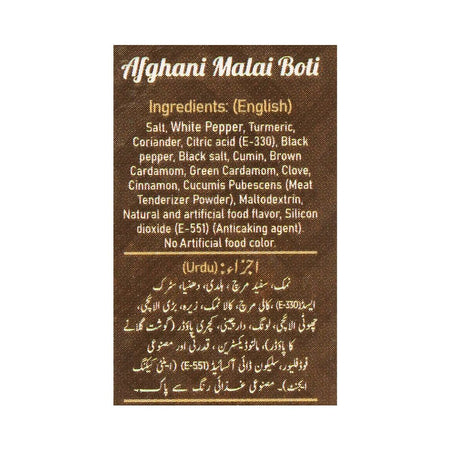 Afghani Malai Boti
Ingredients: (English)
Salt, White Pepper, Turmeric,
Coriander, Citric acid (E-330), Black
pepper, Black salt, Cumin, Brown
Cardamom, Green Cardamom, Clove,
Cinnamon, Cucumis Pubescens (Meat
Tenderizer Powder), Maltodextrin,
Natural and artificial food flavor, Silicon
dioxide (E-551) (Anticaking agent).
No Artificial food color.
اجزاء: (Urdu)
نمک، سفید مرچ، ہلدی، دھنیا، سٹرک
ایسڈ (E-330)، کالی مرچ، کالا نمک، زیرہ، بڑی الائچی،
چھوٹی الائچی، لونگ، دار چینی، کچری پاؤڈر (گوشت گلانے
کا پاؤڈر)، مالٹوڈیکسٹرین، قدرتی اور مصنوعی
فوڈ فلیور، سلیکون ڈائی آکسائیڈ (E-551) (اینٹی کیکنگ
ایجنٹ)۔ مصنوعی غذائی رنگ سے پاک۔